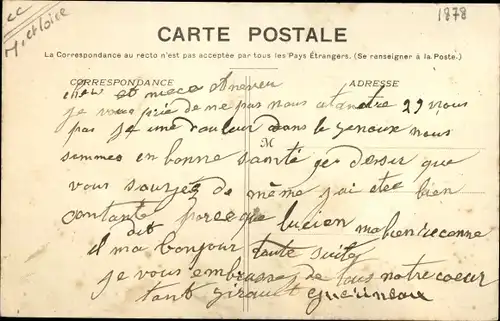 cc
M. et Loire
1878
CARTE POSTALE
La Correspondance au recto n'est pas acceptée par tous les Pays Étrangers. (Se renseigner à la Poste.)
CORRESPONDANCE
ADRESSE
cher et niece et neveu
je vous prie de ne pas nous atandre 29 nous
pas je une douleur dans le genoux nous
M
sommes en bonne santé ge desir que
vous soyez de même j'ai etee bien
contante parce que lucien ma bien reconne
dit
il ma bonjour toute suite
je vous embrasse de tous notre coeur
tant girault guerineau